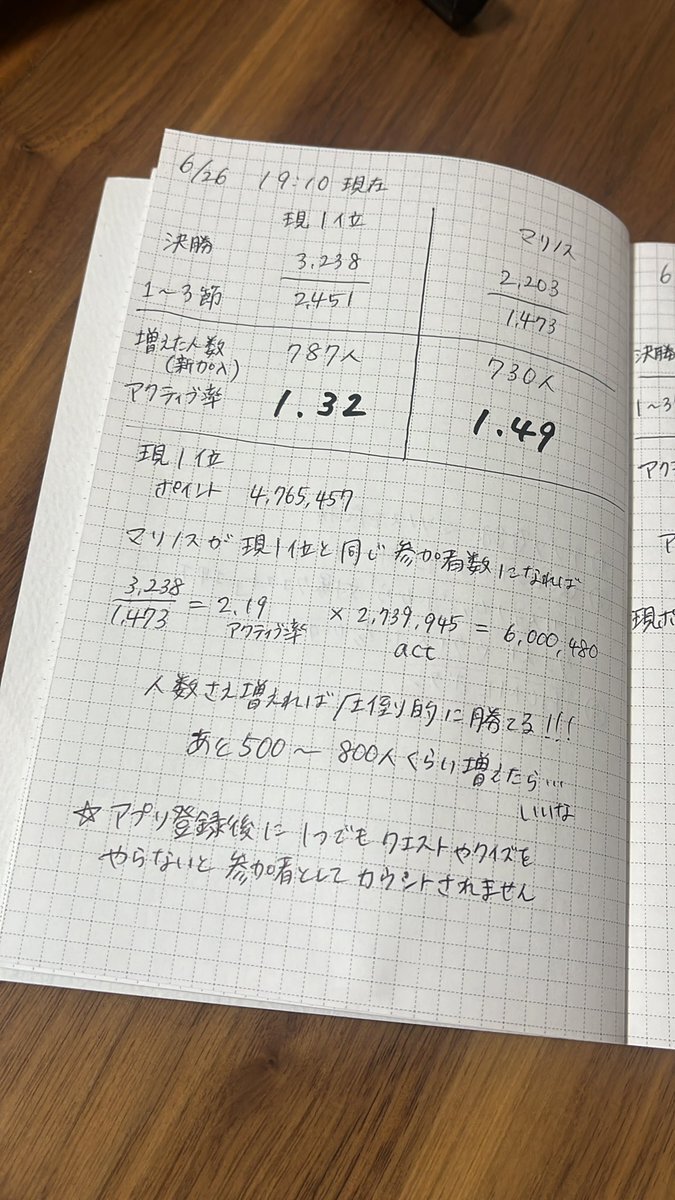 6/26 19:10 現在
現1位 マリノス
決勝 3,238 2,203
1〜3節 2,451 1,473
増えた人数 787人 730人
(新加入)
アクティブ率 1.32 1.49
現1位
ポイント 4,765,457
マリノスが現1位と同じ参加者数になれば
3,238/1,473 = 2.19 × 2,739,945 = 6,000,480
アクティブ率 act
人数さえ増えれば圧倒的に勝てる!!!
あと500〜800人くらい増えたら…
いいな
☆アプリ登録後に1つでもクエストやクイズを
やらないと参加者としてカウントされません
6
決勝
1〜3
アク
ア
現ポ